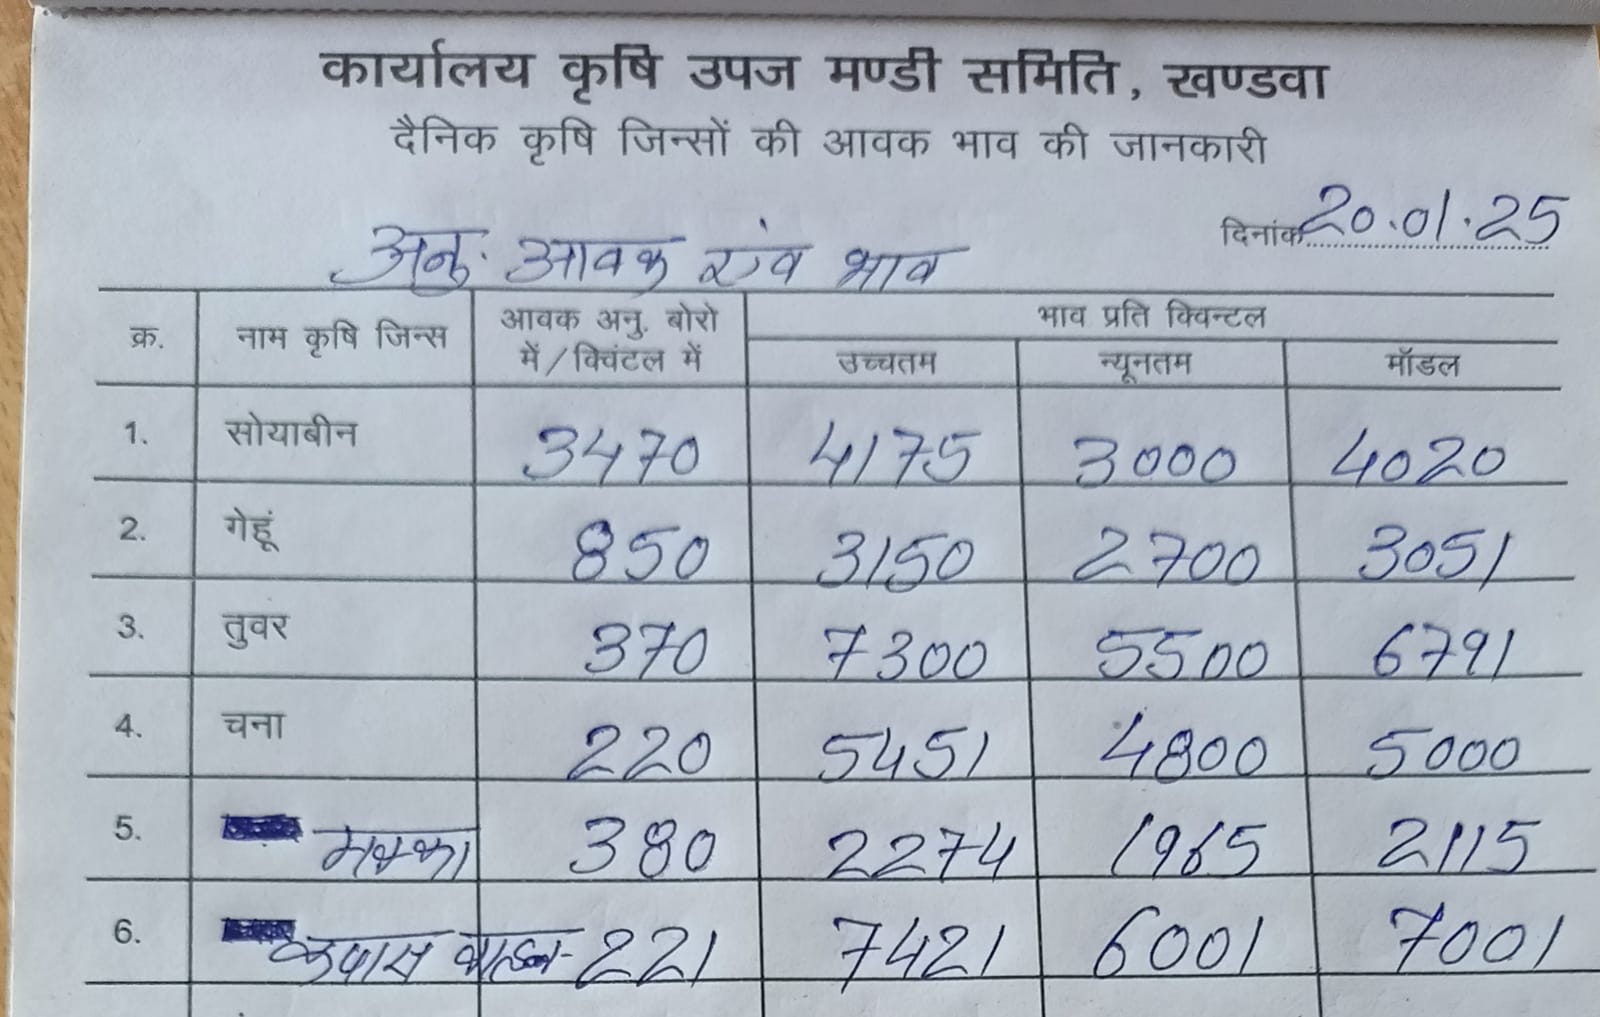 कार्यालय कृषि उपज मण्डी समिति, खण्डवा
दैनिक कृषि जिन्सों की आवक भाव की जानकारी
दिनांक 20.01.25
अनु. आवक एंव भाव
क्र. नाम कृषि जिन्स आवक अनु. बोरो में/क्विंटल में भाव प्रति क्विन्टल
उच्चतम न्यूनतम मॉडल
1. सोयाबीन 3470 4175 3000 4020
2. गेहूं 850 3150 2700 3051
3. तुवर 370 7300 5500 6791
4. चना 220 5451 4800 5000
5. मक्का 380 2274 1965 2115
6. कपास वाहन- 221 7421 6001 7001